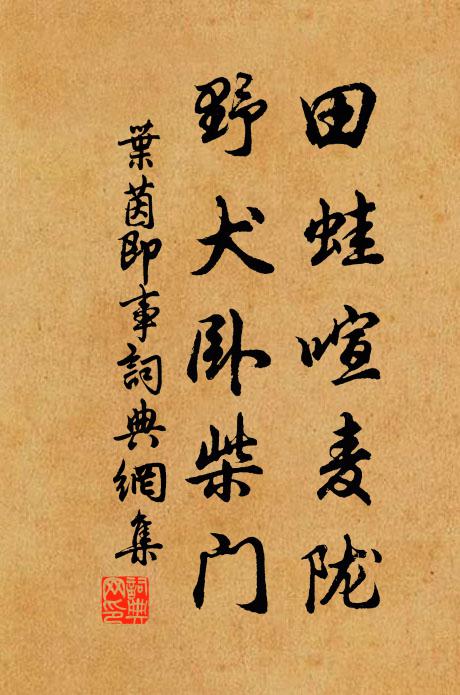 田蛙喧麦陇
野犬卧柴门
葉茵即事詞典網集
詞典网印